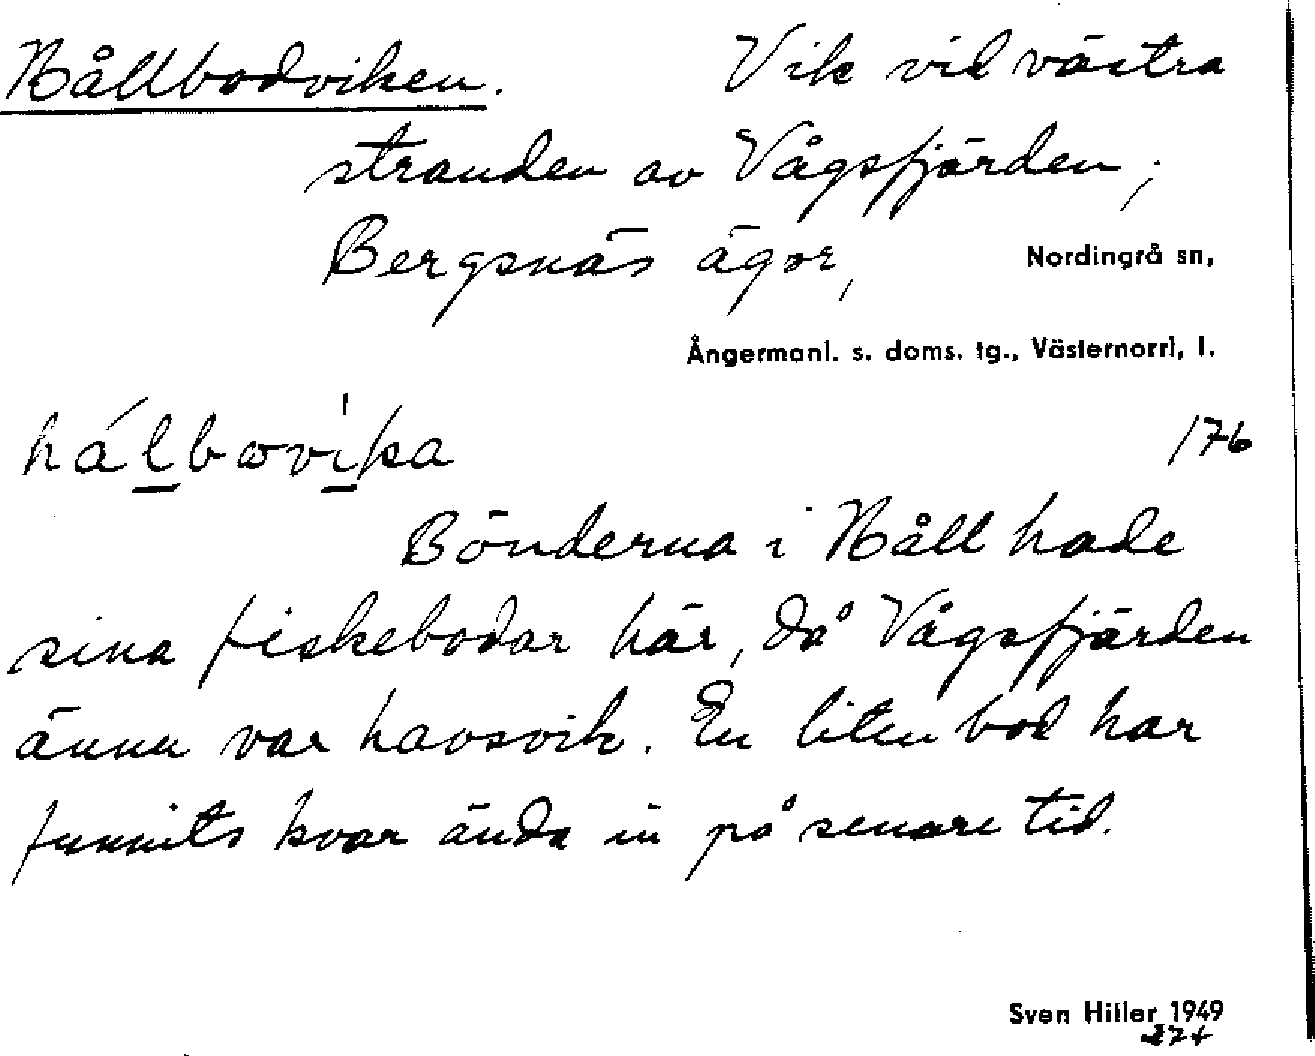 Hållbodviken. Vik vid västra
stranden av Vågsfjärden;
Bergsnäs ägor, Nordingrå sn,
Ångermanl. s. doms. tg., Västernorrl, l.
hálbovika 176
Bönderna i Håll hade
sina fiskebodar här, då Vågsfjärden
ännu var havsvik. En liten bod har
funnits kvar ända in på senare tid.
Sven Hiller 1949